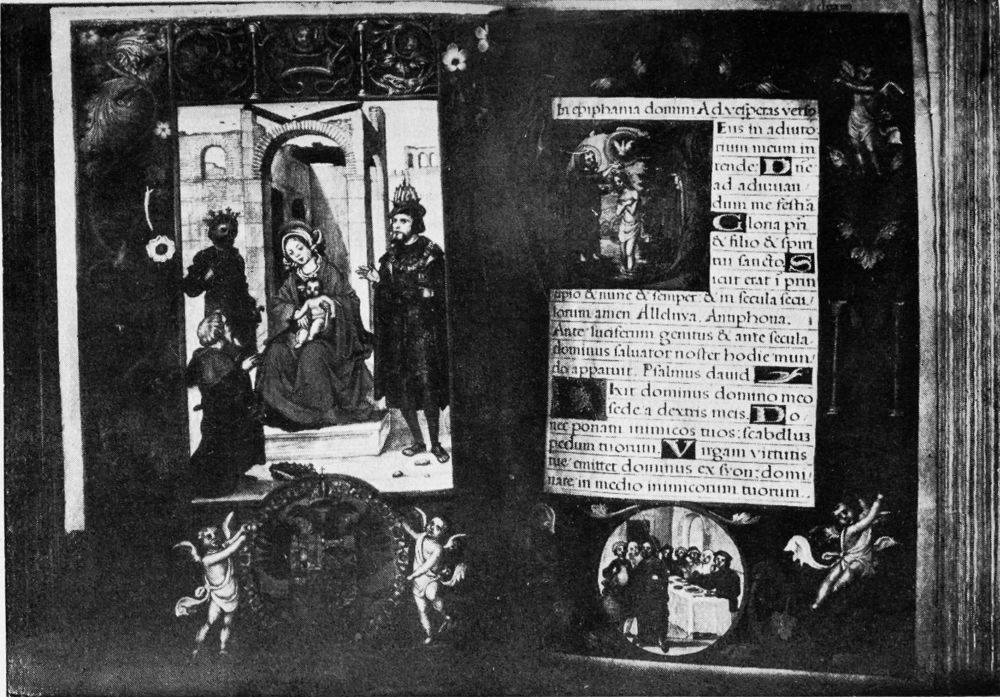 In epiphania domini Ad vesperas versꝰ
Eus in adiuto
rium meum in
tende: Dñe
ad adiuuan
dum me festiā
Gloria pr̄i
& filio & spiri
tui sancto. S
icut erat ī prin
cipio & nunc & semper & in secula secu/
lorum amen Alleluya. Antiphona.
Ante luciferum genitus & ante secula
dominus saluator noster hodie mun/
do apparuit. Psalmus dauid
Ixit dominus domino meo
sede a dextris meis. Do
nec ponam inimicos tuos: scabelluȝ
pedum tuorum. Virgam virtutis
tue emittet dominus ex syon: domi/
nare in medio inimicorum tuorum.